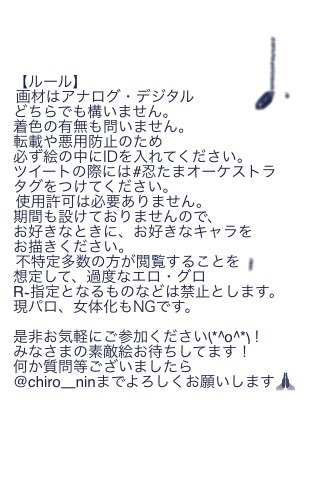 【ルール】
画材はアナログ・デジタル
どちらでも構いません。
着色の有無も問いません。
転載や悪用防止のため
必ず絵の中にIDを入れてください。
ツイートの際には#忍たまオーケストラ
タグをつけてください。
使用許可は必要ありません。
期間も設けておりませんので、
お好きなときに、お好きなキャラを
お描きください。
不特定多数の方が閲覧することを
想定して、過度なエロ・グロ
R-指定となるものなどは禁止とします。
現パロ、女体化もNGです。
是非お気軽にご参加ください\(*^o^*)\！
みなさまの素敵絵お待ちしてます！
何か質問等ございましたら
@chiro__ninまでよろしくお願いします🙏